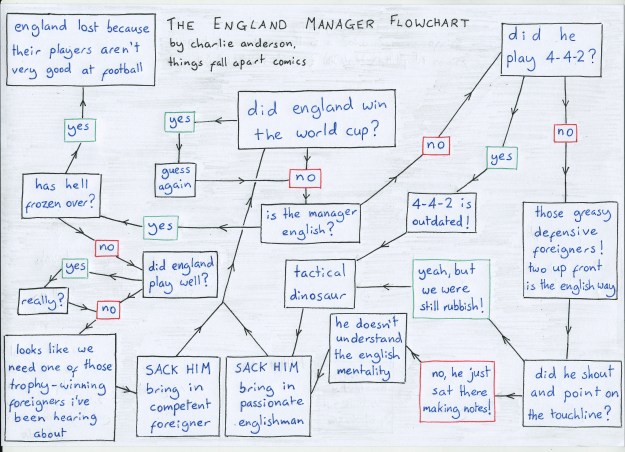 THE ENGLAND MANAGER FLOWCHART
by charlie anderson,
things fall apart comics
england lost because
their players aren't
very good at football
did he
play 4-4-2?
did england win
the world cup?
yes
guess
again
no
yes
has hell
frozen over?
is the manager
english?
yes
no
yes
no
4-4-2 is
outdated!
those greasy
defensive
foreigners!
two up front
is the english way
no
did england
play well?
yes
really?
no
tactical
dinosaur
yeah, but
we were
still rubbish!
he doesn't
understand
the english
mentality
looks like we
need one of those
trophy-winning
foreigners i've
been hearing
about
SACK HIM
bring in
competent
foreigner
SACK HIM
bring in
passionate
englishman
no, he just
sat there
making notes!
did he shout
and point on
the touchline?